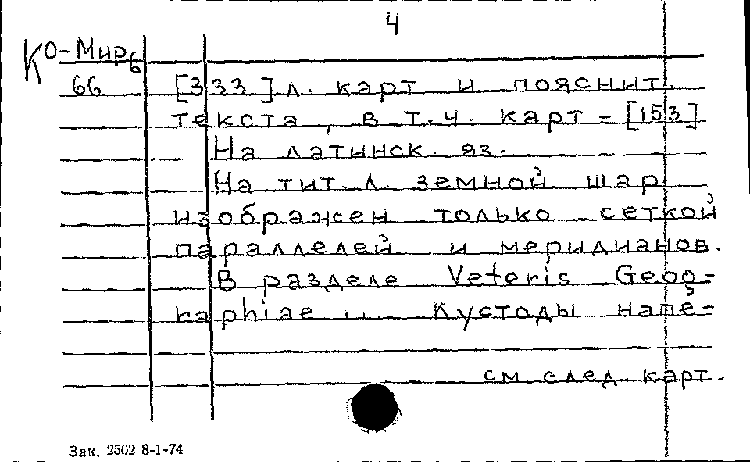 4
Ко-Мир6
66 [333] л. карт и пояснит.
текста, в т.ч. карт - [153]
На латинск. яз.
На тит. л. земной шар
изображен только сеткой
параллелей и меридианов.
В разделе Veteris Geog=
raphiae ... кустоды напе=
см. след. карт.
Зак. 2502 8-1-74